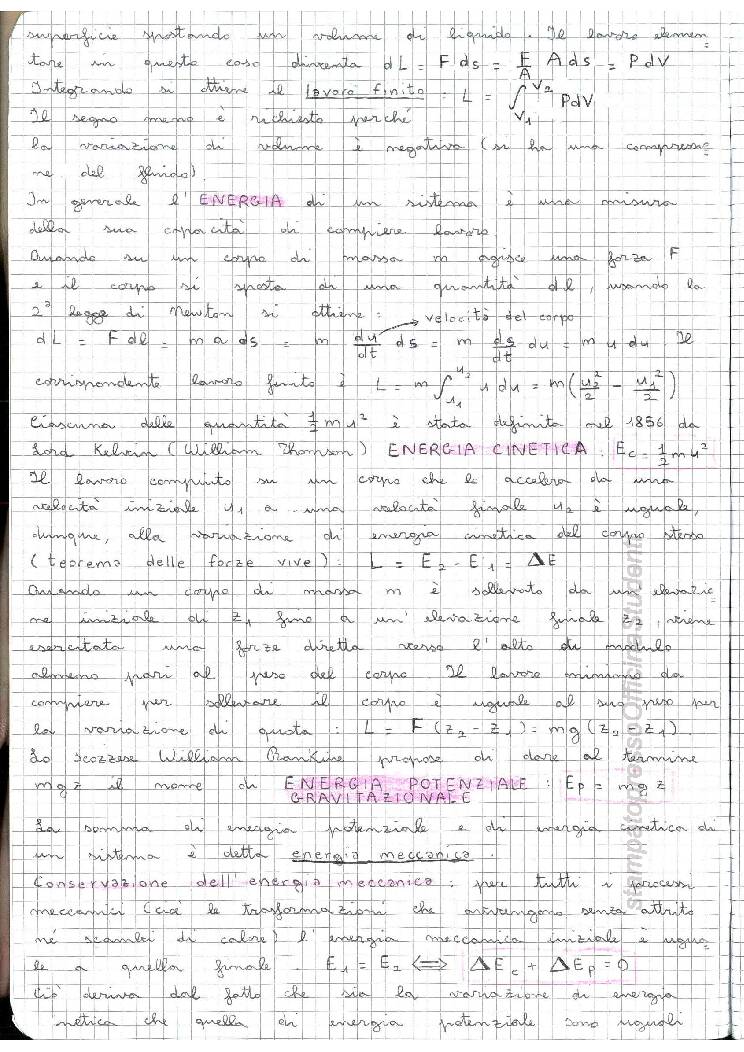 superficie spostando un volume di liquido. Il lavoro elemen=
tare in questo caso diventa dL = F ds = F/A A ds = P dV
Integrando si ottiene il lavoro finito : L = ∫_V1^V2 PdV
Il segno meno è richiesto perché
la variazione di volume è negativa (si ha una compressio=
ne del fluido).
In generale l'ENERGIA di un sistema è una misura
della sua capacità di compiere lavoro.
Quando su un corpo di massa m agisce una forza F
e il corpo si sposta di una quantità dl, usando la
2ª legge di Newton si ottiene :
velocità del corpo
dL = F dl = m a ds = m du/dt ds = m ds/dt du = m u du. Il
corrispondente lavoro finito è L = m ∫ u du = m (u2²/2 - u1²/2)
Ciascuna delle quantità 1/2 m u² è stata definita nel 1856 da
Lord Kelvin (William Thomson) ENERGIA CINETICA : Ec = 1/2 m u²
Il lavoro compiuto su un corpo che lo accelera da una
velocità iniziale u1 a una velocità finale u2 è uguale,
dunque, alla variazione di energia cinetica del corpo stesso
(teorema delle forze vive) : L = E2 - E1 = ΔE
Quando un corpo di massa m è sollevato da un'elevazio=
ne iniziale di z1 fino a un'elevazione finale z2, viene
esercitata una forza diretta verso l'alto di modulo
almeno pari al peso del corpo. Il lavoro minimo da
compiere per sollevare il corpo è uguale al suo peso per
la variazione di quota : L = F (z2 - z1) = mg (z2 - z1).
Lo scozzese William RanKine propose di dare al termine
mgz il nome di ENERGIA POTENZIALE : Ep = mgz
GRAVITAZIONALE
La somma di energia potenziale e di energia cinetica di
un sistema è detta energia meccanica.
Conservazione dell'energia meccanica : per tutti i processi
meccanici (cioè le trasformazioni che avvengono senza attrito
né scambi di calore) l'energia meccanica iniziale è ugua=
le a quella finale E1 = E2 ⟺ ΔEc + ΔEp = 0
Ciò deriva dal fatto che sia la variazione di energia
netica che quella di energia potenziale sono uguali
stampato presso Officina Studenti